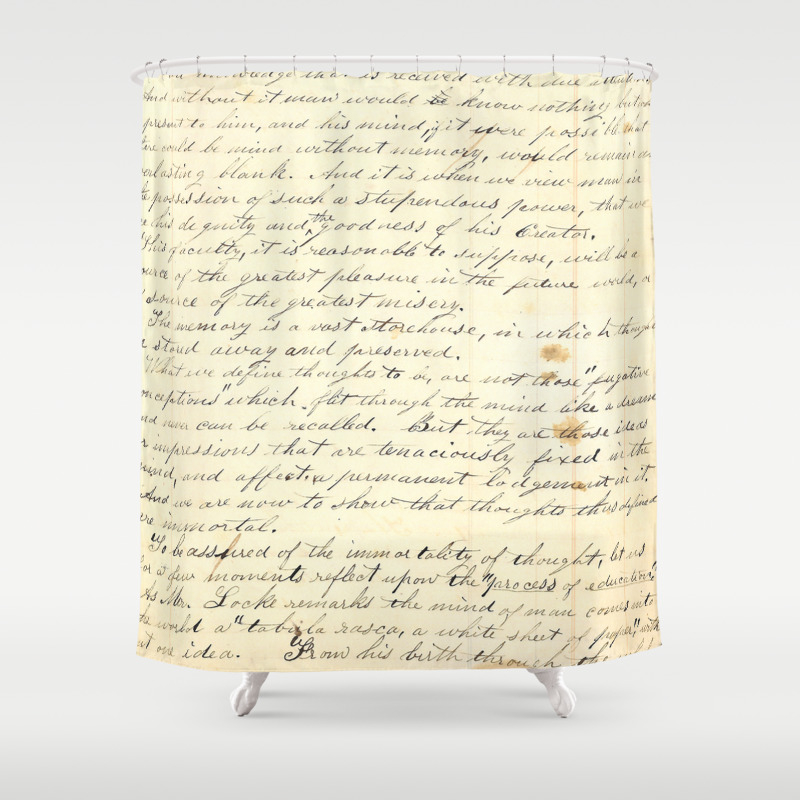 knowledge that is received with due
And without it man would know nothing but
present to him, and his mind, if it were possible that
there could be mind without memory, would remain an
everlasting blank. And it is when we view man in
the possession of such a stupendous power, that we
see his dignity and the goodness of his Creator.
This faculty, it is reasonable to suppose, will be a
source of the greatest pleasure in the future world, or
a source of the greatest misery.
The memory is a vast storehouse, in which thoughts
stored away and preserved.
What we define thoughts to be, are not those "fugative
conceptions" which flit through the mind like a dream
and never can be recalled. But they are those ideas
or impressions that are tenaciously fixed in the
mind, and affect a permanent lodgement in it.
And we are now to show that thoughts thus defined
are immortal.
To be assured of the immortality of thought, let us
for a few moments reflect upon the "process of education."
As Mr. Locke remarks the mind of man comes into
the world a "tabula rasca, a white sheet of paper," with
out one idea. From his birth through the